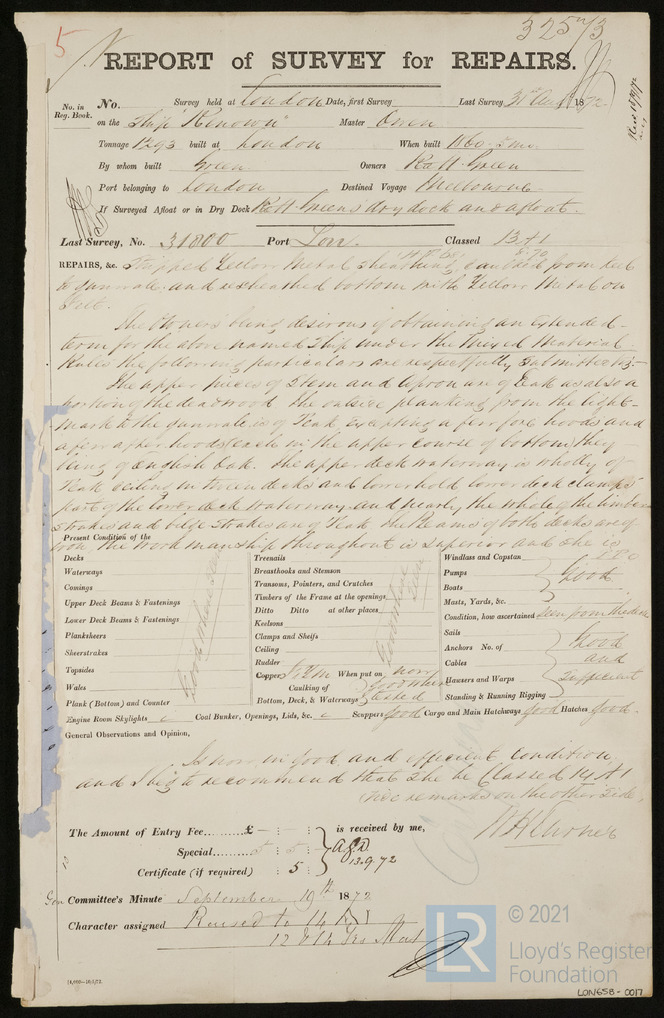 5
325 73
REPORT of SURVEY for REPAIRS.
No. in Reg. Book.
No. Survey held at London Date, first Survey Last Survey, 31st Aug 1872
on the Ship "Renown" Master Owen
Tonnage 1293 built at London When built 1860-5 mo.
By whom built Green Owners R & H Green
Port belonging to London Destined Voyage Melbourne
If Surveyed Afloat or in Dry Dock R & H Green's dry dock and afloat.
Last Survey, No. 31800 Port Lon. Classed 13 A1
REPAIRS, &c. Stripped Yellow Metal sheathing, caulked from keel
to gunwale and resheathed bottom with Yellow Metal on
Felt.
The Owners being desirous of obtaining an Extended
term for the above named Ship under the Mixed Material
Rules the following particulars are respectfully submitted viz:-
The upper pieces of Stem and apron are of Teak as also a
portion of the deadwood the outside planking from the light
mark to the gunwale is of Teak excepting a few fore hoods and
a few after hoods each in the upper course of bottom they
being of English Oak. The upper deck waterway is wholly of
Teak ceiling in tween decks and lower hold lower deck clamps
part of the lower deck waterway and nearly the whole of the limber
strakes and bilge strakes are of Teak the Beams of both decks are of
iron the workmanship throughout is superior and she is
Present Condition of the
Decks
Waterways
Comings
Upper Deck Beams & Fastenings
Lower Deck Beams & Fastenings
Planksheers
Sheerstrakes
Topsides
Wales
Plank (Bottom) and Counter
Good where seen
Treenails
Breasthooks and Stemson
Transoms, Pointers, and Crutches
Timbers of the Frame at the openings
Ditto Ditto at other places
Keelsons
Clamps and Shelfs
Ceiling
Rudder
Good where seen
Copper When put on now
Caulking of Bottom, Deck, & Waterways Good where tested
Windlass and Capstan
Pumps
Boats
Good
Masts, Yards, &c.
Condition, how ascertained seen from the deck
Sails
Anchors No. of
Cables
Hausers and Warps
Standing & Running Rigging
Good and sufficient
Engine Room Skylights Coal Bunker, Openings, Lids, &c. Scuppers good Cargo and Main Hatchways good Hatches good.
General Observations and Opinion,
Is now in good and efficient condition,
and I beg to recommend that she be Classed 14 A1
(vide remarks on the other side)
The Amount of Entry Fee......£ is received by me,
Special.....5 : 5 :
Certificate (if required) : 5 :
13.9.72
Committee's Minute September 19th 1872
Character assigned Raised to 14 A1
© 2021
LR
Lloyd's Register
Foundation
LON658-0017